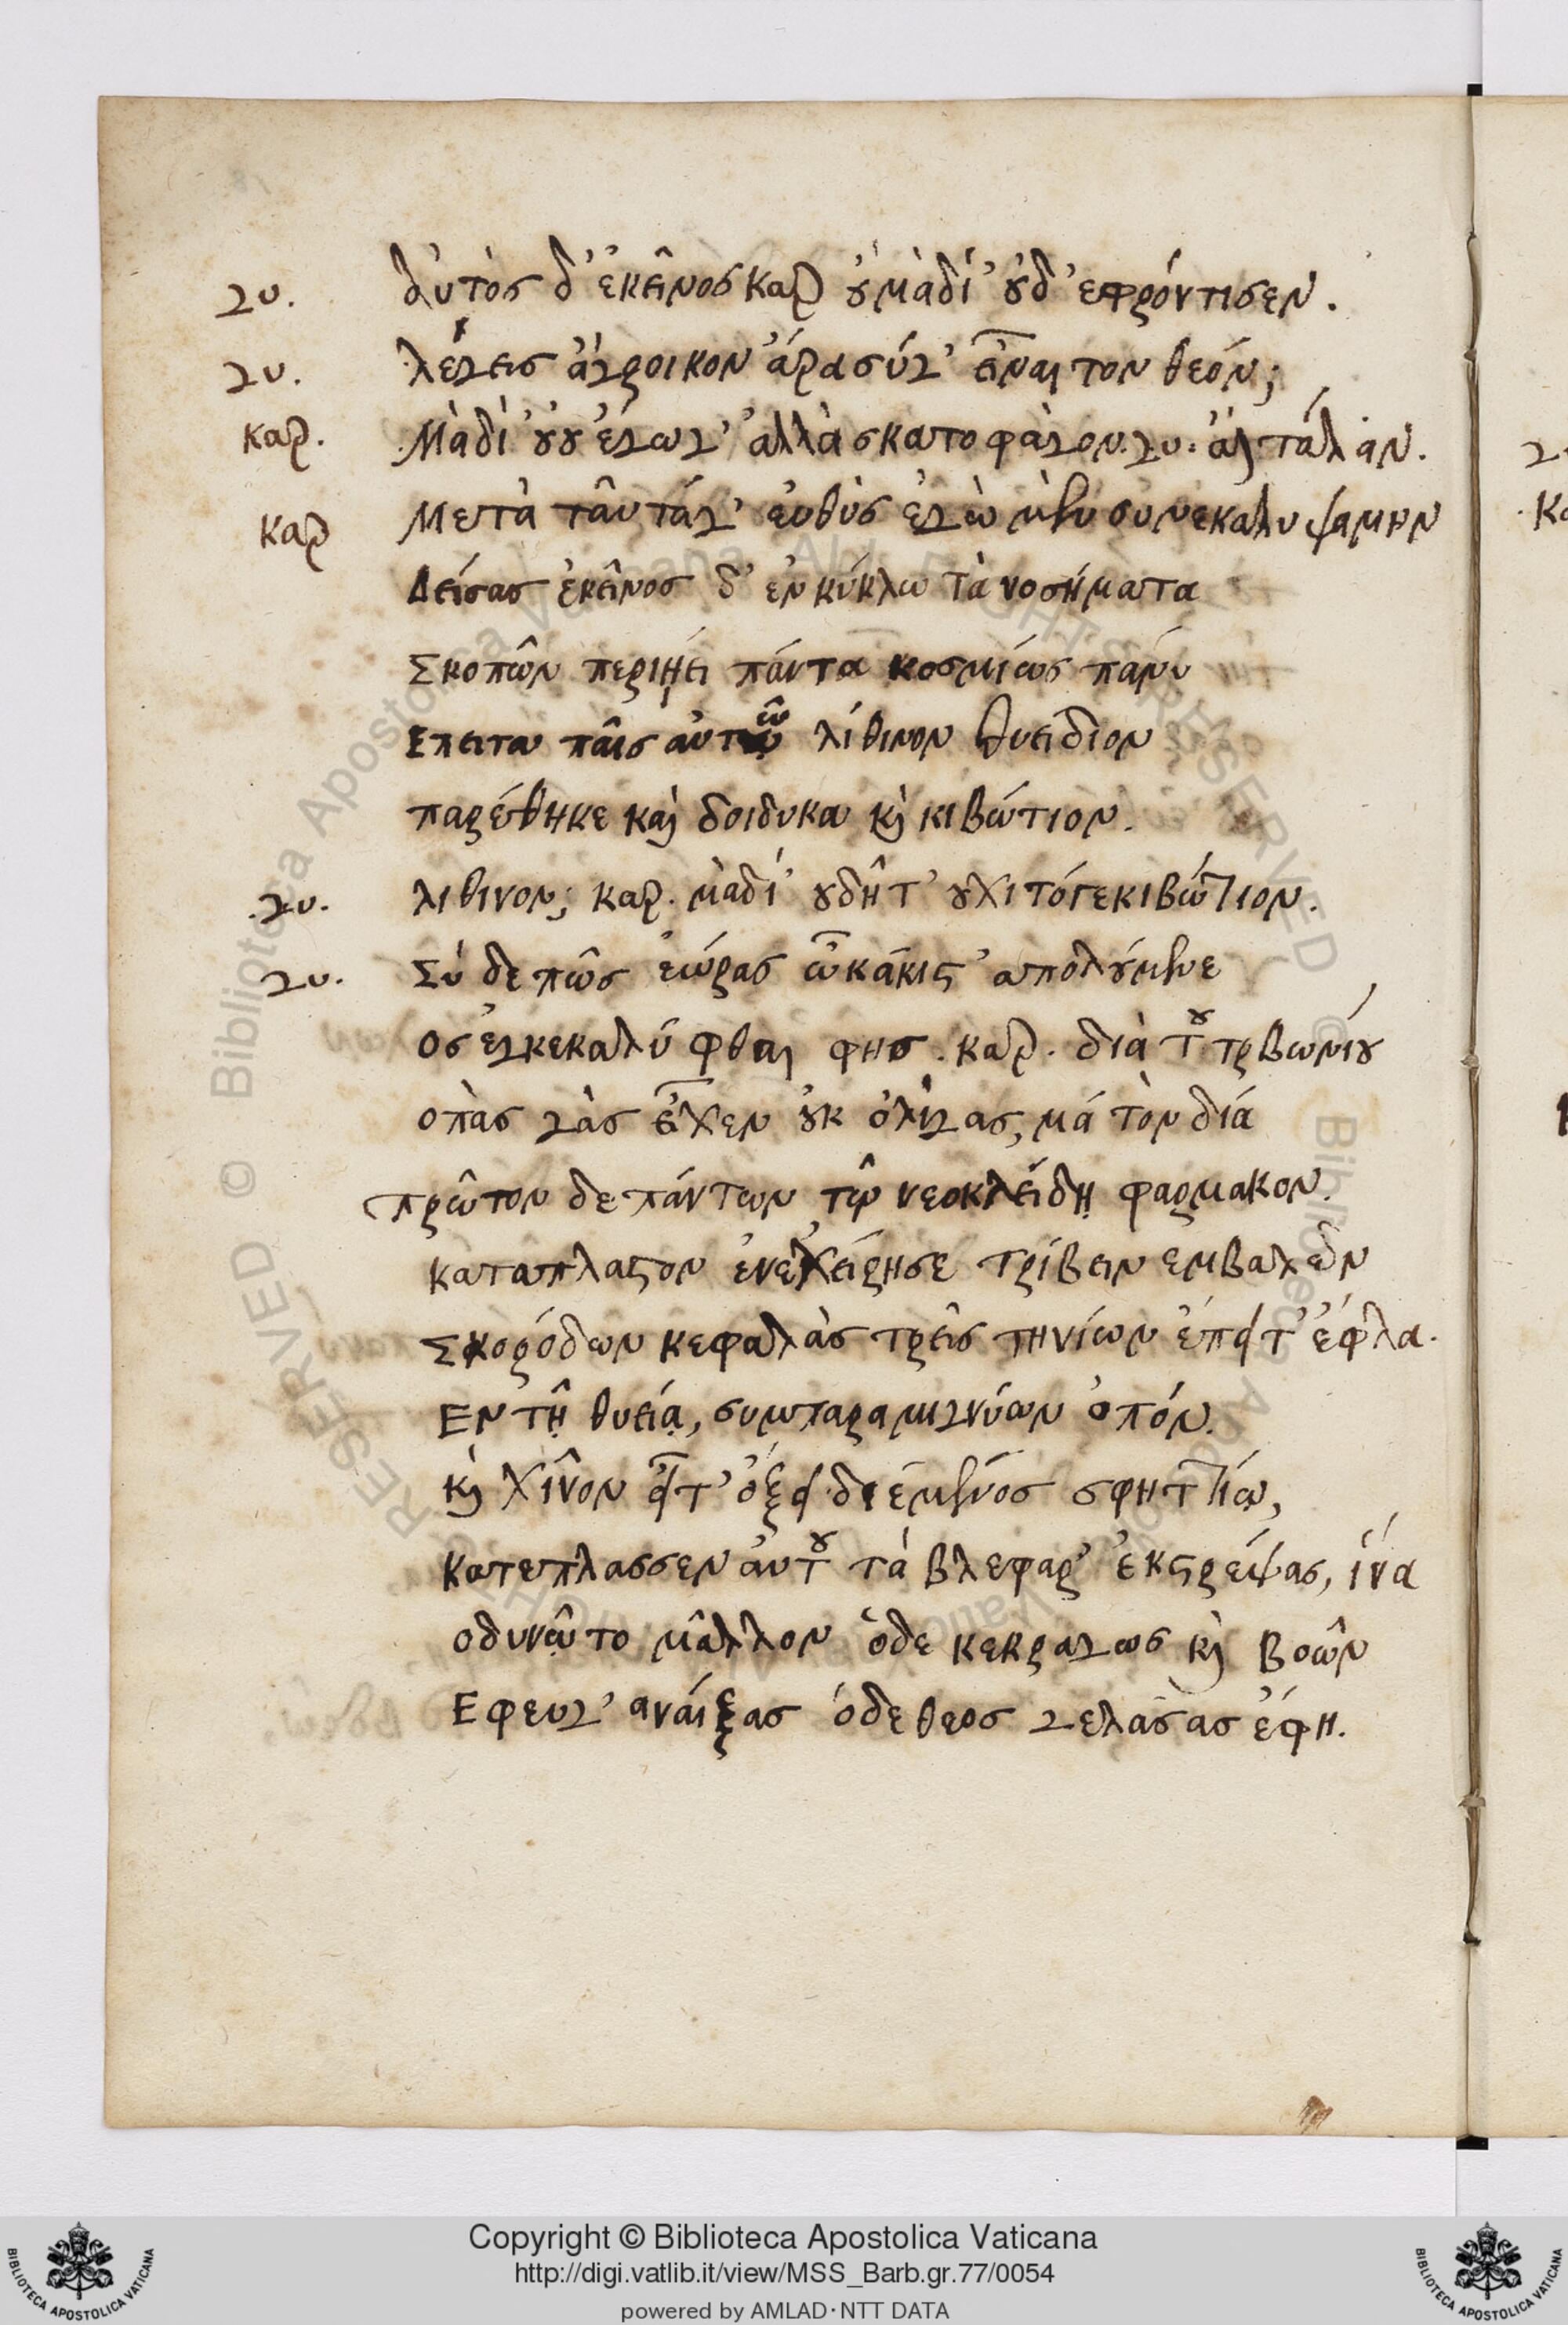 γυ. αὐτὸσ δ' ἐκεῖνοσ καρ οὐ μὰ δί' οὐδ' εφρόντισεν.
γυ. λέγεισ ἄγροικον ἄρα σύγ' εἶναι τον θεόν;
καρ. Μὰ δί' οὐ ἔγωγ' ἀλλὰ σκατοφάγον. γυ. αἲ τάλαν.
καρ Μετὰ ταῦτάγ' εὐθὺσ ἐγὼ μὲν συνεκαλυψαμην
Δείσασ ἐκεῖνοσ δ' ἐν κύκλω τὰ νοσήματα
Σκοπῶν περιῄει πάντα κοσμίωσ πάνυ
Επειτα παῖσ αὐτῶ λίθινον θυειδιον
παρέθηκε καὶ δοιδυκα κὶ κιβώτιον.
γυ. λιθινον; καρ. μὰ δί' οὐδῆτ' οὐχι τόγε κιβώτιον.
γυ. Σύ δε πῶσ εώρασ ὦ κάκιστ' απολούμενε
Οσ εγκεκαλύφθαι φησ. καρ. διὰ τοῦ τρβωνίου
οπὰσ γὰσ εἶχεν οὐκ ὀλίγασ, μά τὸν δία
πρῶτον δε πάντων τῷ νεοκλείδῃ φαρμακον.
καταπλαστον ἐνεχείρησε τρίβειν εμβαλὼν
Σκορόδων κεφαλὰσ τρεῖσ τηνίων ἔπειτ' ἔφλα.
Εν τῇ θυείᾳ, συμπαραμιγνύων ὀπόν.
κὶ χῖνον εἶτ' ὄξει διέμενοσ σφηττίῳ,
κατεπλασσεν αὐτοῦ τὰ βλεφαρ' ἐκστρέψασ, ἵνα
οδυνῷτο μᾶλλον ὁδε κεκραγωσ κὶ βοῶν
Εφευγ' ανάιξασ ὁδε θεοσ γελάσασ ἔφη.
Copyright © Biblioteca Apostolica Vaticana
http://digi.vatlib.it/view/MSS_Barb.gr.77/0054
powered by AMLAD·NTT DATA